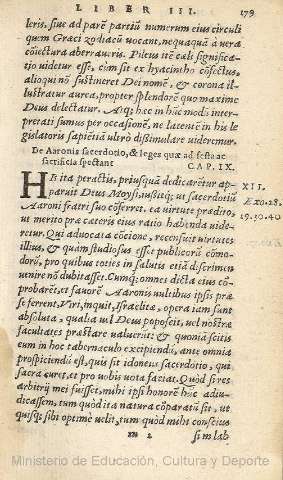 LIBER III. 179
leris, siue ad parē partiū numerum eius circuli
quem Græci zodiacū uocant, nequaquā a uera
cōiectura aberraueris. Pileus itē cœli significa-
tio uidetur esse, cùm sit ex hyacintho cōfectus,
alioqui nō sustineret Dei nomē, & corona il-
lustratur aurea, propter splendorē quo maxime
Deus delectatur. Atq; hæc in hūc modū inter-
pretati sumus per occasionē, ne latente in his le
gislatoris sapiētiā ultro dissimulare uideremur.
De Aaronis sacerdotio, & leges quæ ad festa ac
sacrificia spectant. CAP. IX.
HIs ita peractis, priusquā dedicaretur ap-
paruit Deus Moysi, iussitq; ut sacerdotiū
Aaroni fratri suo cōferret, ea uirtute prædito,
ut merito præ cæteris eius ratio habenda uide-
retur. Qui aduocata cōcione, recensuit uirtutes
illius, & quàm studiosus esset publicorū cōmo-
dorū, pro quibus toties in salutis etiā discrimen
uenire nō dubitasset. Cumq; omnes dicta eius cō
probarēt, et fauorē Aaronis uultibus ipsis præ
se ferrent, Viri, inquit, Israelitæ, opera iam sunt
absoluta, qualia uel Deus poposcit, uel nostræ
facultates præstare ualuerūt: & quoniā scitis
eum in hoc tabernaculo excipiendū, ante omnia
prospiciendū est, quis sit idoneus sacerdotio, qui
sacra curet, et pro uobis uota faciat. Quòd si res
arbitrij mei fuisset, mihi ipsi honorē hūc adiu-
dicassem, tum quòd ita natura cōparatū sit, ut
quisq; sibi optime uelit, tum quòd mihi conscius
m 2 sim lab
XII.
Exo. 28.
29. 30. 40
Ministerio de Educación, Cultura y Deporte